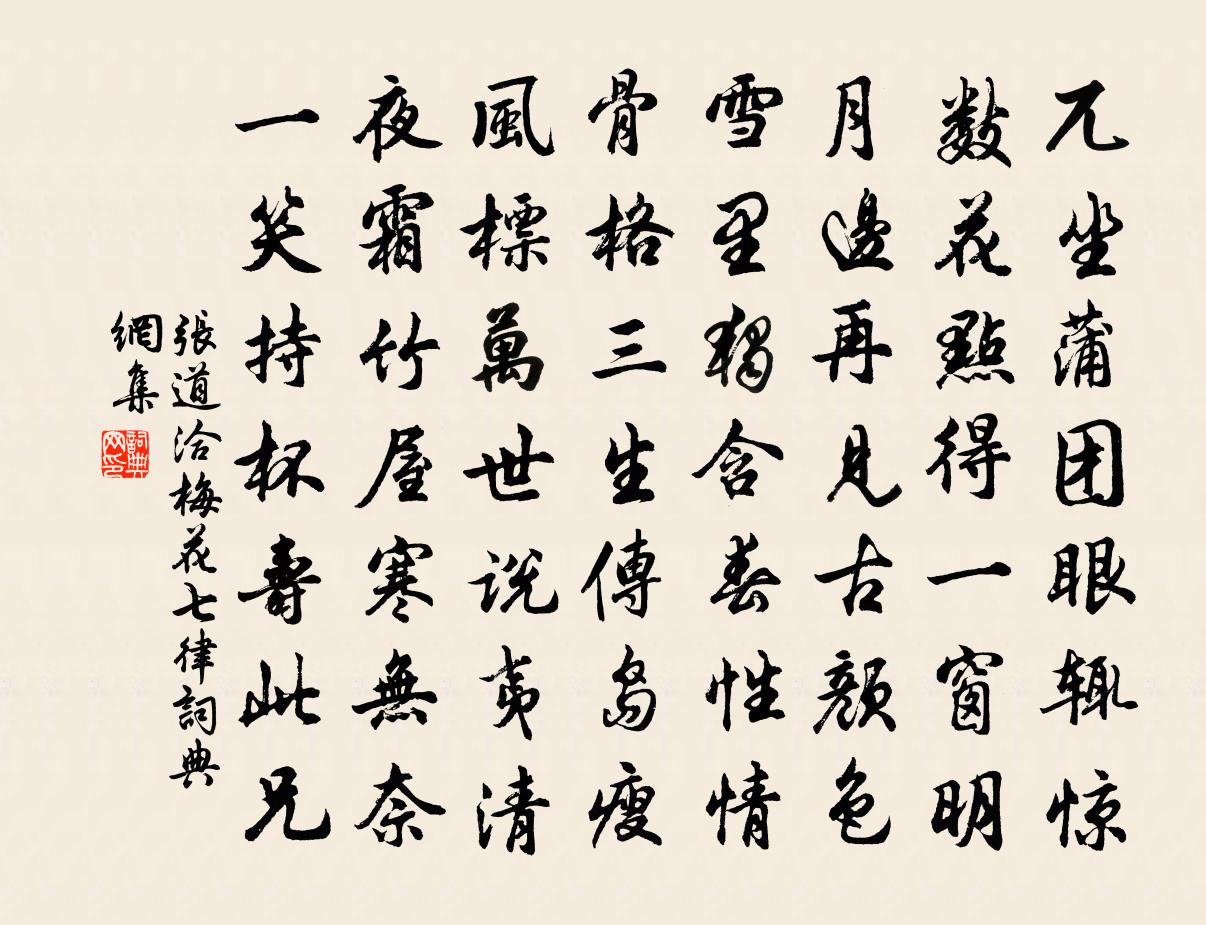 兀坐蒲团眼辄惊
数花點得一窗明
月邊再見古顔色
雪里獨含春性情
骨格三生傳島瘦
風標萬世説夷清
夜霜竹屋寒無奈
一笑持杯壽此兄
張道洽梅花七律詞典
網集
詞典
网印